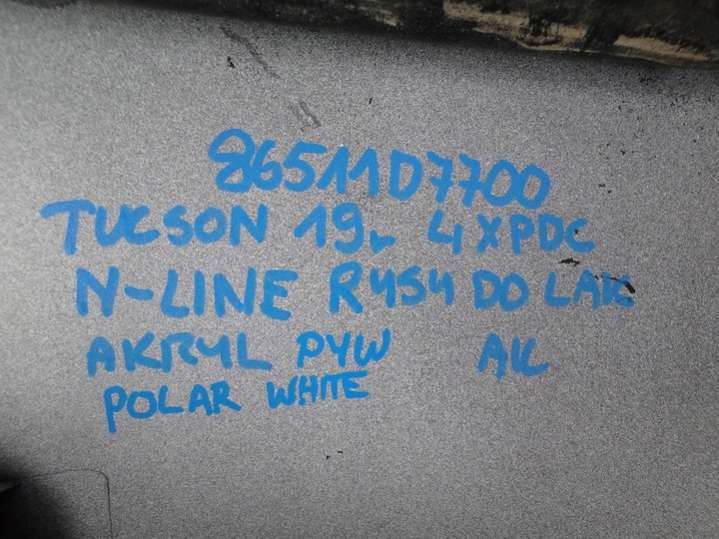 86511D7700
TUCSON 19r 4XPDC
N-LINE RYSY DO LAK
AKRYL PYW AK
POLAR WHITE